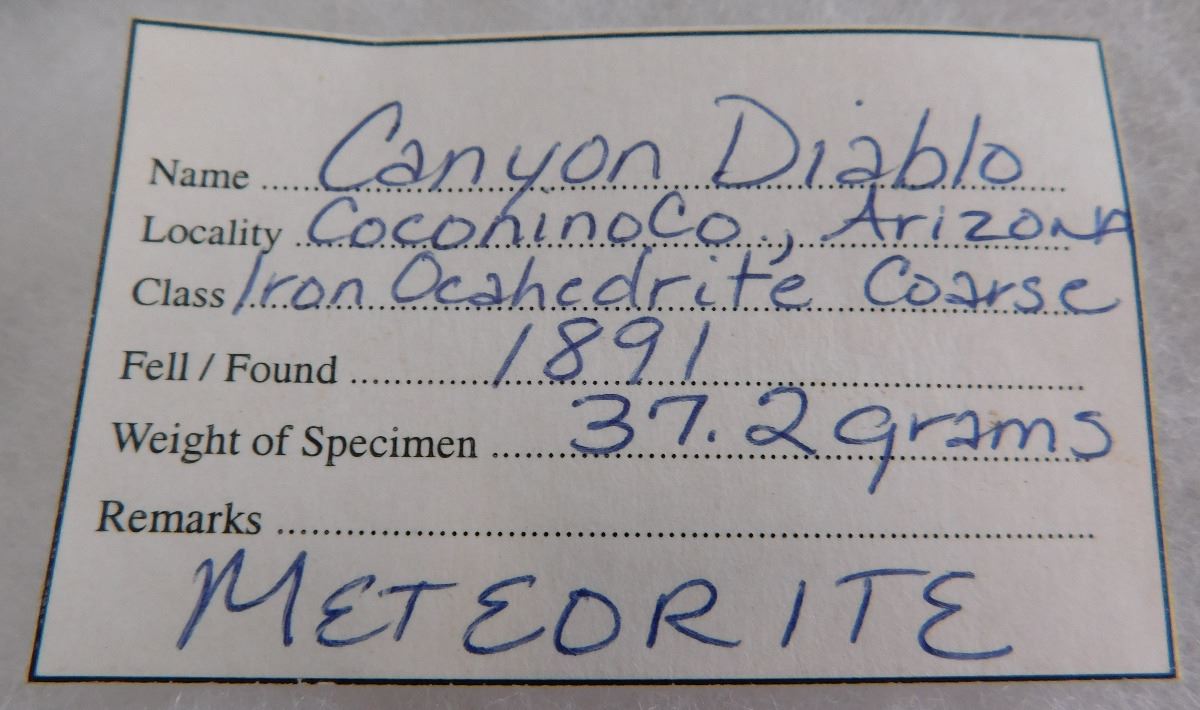 Name Canyon Diablo
Locality Coconino Co., Arizona
Class Iron Ocahedrite Coarse
Fell / Found 1891
Weight of Specimen 37.2 grams
Remarks
METEORITE